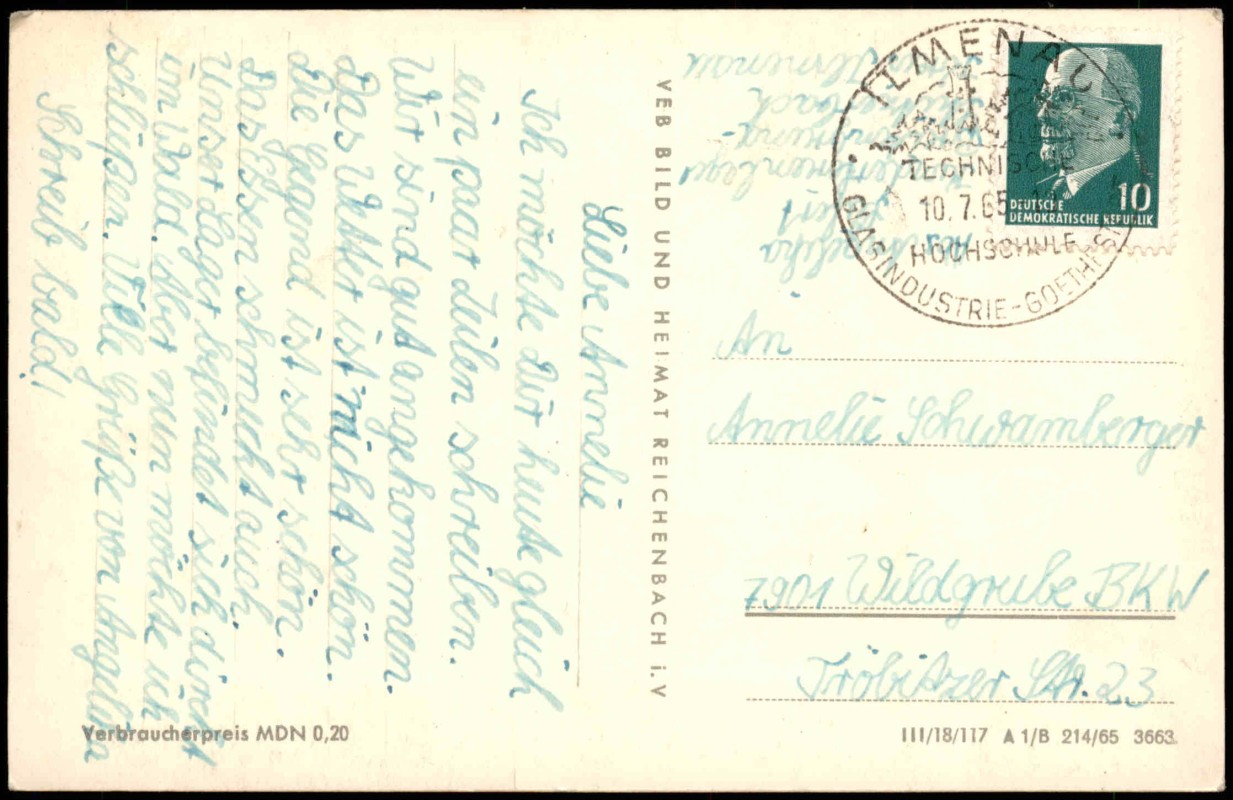 Liebe Annelie
Ich möchte Dir heute gleich
ein paar Zeilen schreiben.
Wir sind gut angekommen.
Das Wetter ist nicht schön.
Die Gegend ist sehr schön.
Das Essen schmeckt auch.
Unser Lager befindet sich direkt
im Wald. Aber nun möchte ich
schließen. Viele Grüße von Angelika
Schreib bald!
Verbraucherpreis MDN 0,20
VEB BILD UND HEIMAT REICHENBACH i.V
Angelika
Ilmenau
ILMENAU
TECHNISCHE
10.7.65
HOCHSCHULE
GLASINDUSTRIE-GOETHEST
10
DEUTSCHE
DEMOKRATISCHE REPUBLIK
An
Annelie Schwamberger
7901 Wildgrube BKW
Tröbitzer Str. 23
III/18/117 A 1/B 214/65 3663